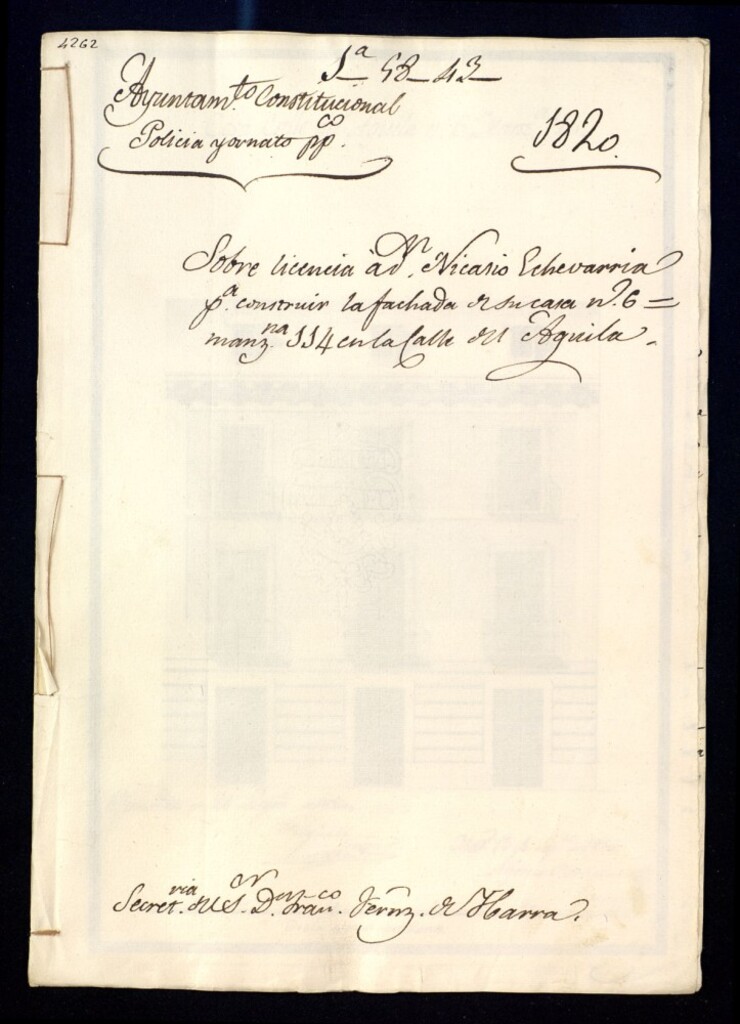 4262
1ª 58-43
Ayuntam.to Constitucional
Policia y ornato pp.co
1820.
Sobre licencia à d.n Nicasio Echevarria
p.a construir la fachada de su casa n.o 6=
manz.na 114 en la Calle del Aguila.
Secret.ria del S.or D.n Fran.co Fernz. de Ibarra.